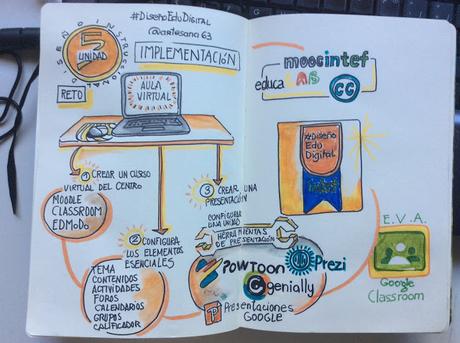 #DiseñoEduDigital
@artesana63
DISEÑO INSTRUCCIONAL
5
UNIDAD
IMPLEMENTACIÓN
RETO
AULA
VIRTUAL
1 CREAR UN CURSO
VIRTUAL DEL CENTRO
MOODLE
CLASSROOM
EDMODO
2 CONFIGURA
LOS ELEMENTOS
ESENCIALES
TEMA
CONTENIDOS
ACTIVIDADES
FOROS
CALENDARIOS
GRUPOS
CALIFICADOR
3 CREAR UNA
PRESENTACIÓN
CONFIGURAR
UNA UNIDAD
HERRAMIENTAS
DE PRESENTACIÓN
POWTOON
Prezi
genially
Presentaciones
GOOGLE
moocintef
educaLAB
CC
#Diseño
Edu
Digital
E.V.A.
Google
Classroom